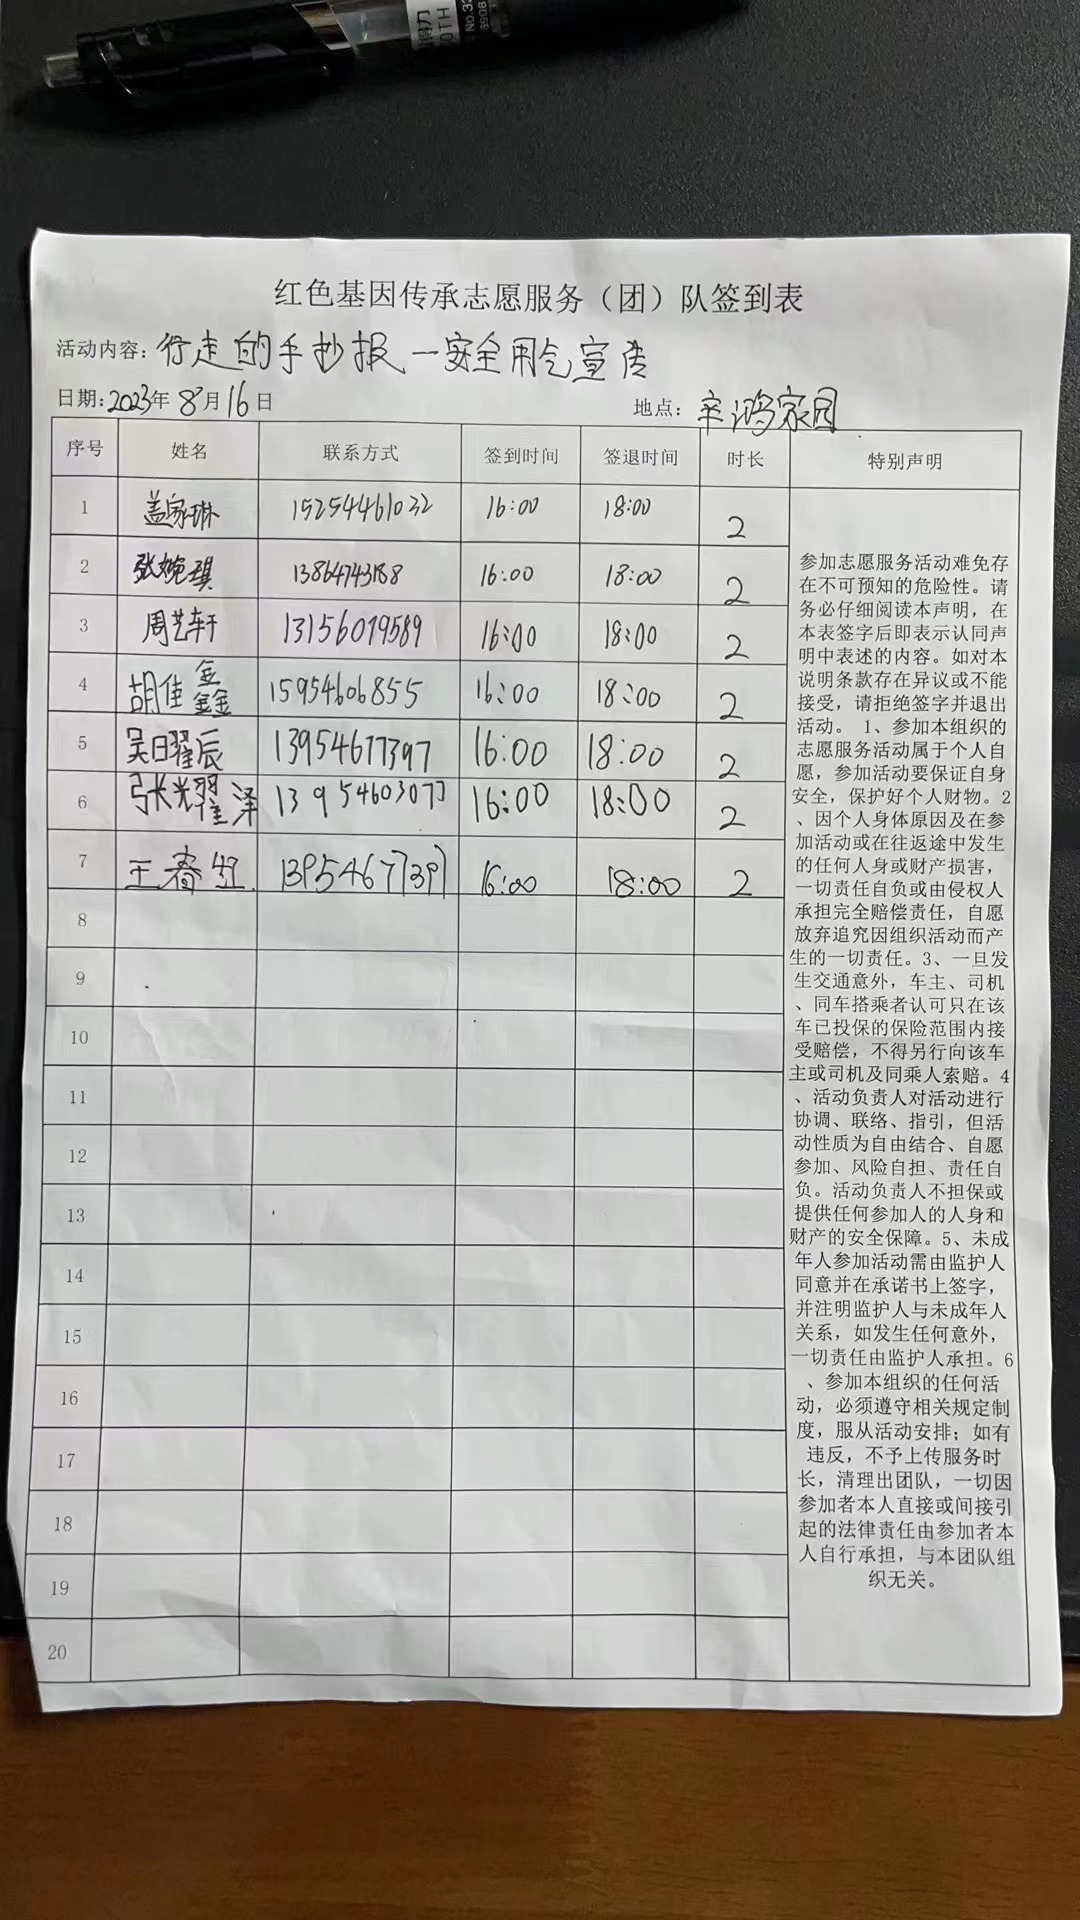 No.33
红色基因传承志愿服务（团）队签到表
活动内容：行走的手抄报—安全用气宣传
日期：2023年8月16日 地点：辛鸿家园
序号 姓名 联系方式 签到时间 签退时间 时长 特别声明
1 盖家琳 15254461032 16:00 18:00 2
2 张婉琪 13864743188 16:00 18:00 2
3 周艺轩 13156019589 16:00 18:00 2
4 胡佳鑫 15954606855 16:00 18:00 2
5 吴日曜辰 13954677397 16:00 18:00 2
6 张光耀泽 13954603077 16:00 18:00 2
7 王春红 13954677397 16:00 18:00 2
8
9
10
11
12
13
14
15
16
17
18
19
20
参加志愿服务活动难免存
在不可预知的危险性。请
务必仔细阅读本声明，在
本表签字后即表示认同声
明中表述的内容。如对本
说明条款存在异议或不能
接受，请拒绝签字并退出
活动。 1、参加本组织的
志愿服务活动属于个人自
愿，参加活动要保证自身
安全，保护好个人财物。2
、因个人身体原因及在参
加活动或在往返途中发生
的任何人身或财产损害，
一切责任自负或由侵权人
承担完全赔偿责任，自愿
放弃追究因组织活动而产
生的一切责任。3、一旦发
生交通意外，车主、司机
、同车搭乘者认可只在该
车已投保的保险范围内接
受赔偿，不得另行向该车
主或司机及同乘人索赔。4
、活动负责人对活动进行
协调、联络、指引，但活
动性质为自由结合、自愿
参加、风险自担、责任自
负。活动负责人不担保或
提供任何参加人的人身和
财产的安全保障。5、未成
年人参加活动需由监护人
同意并在承诺书上签字，
并注明监护人与未成年人
关系，如发生任何意外，
一切责任由监护人承担。6
、参加本组织的任何活
动，必须遵守相关规定制
度，服从活动安排；如有
违反，不予上传服务时
长，清理出团队，一切因
参加者本人直接或间接引
起的法律责任由参加者本
人自行承担，与本团队组
织无关。